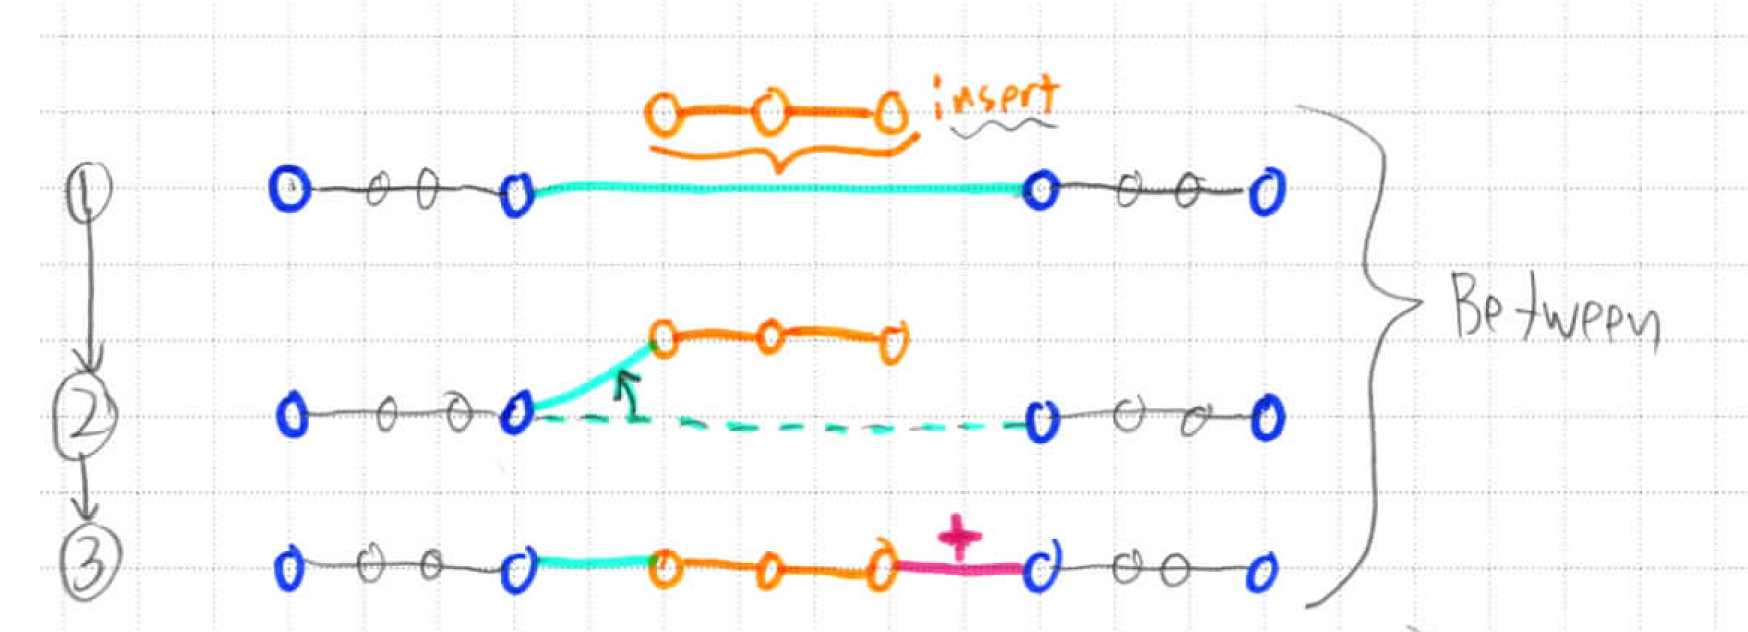 insert
1
2
Between
+
3